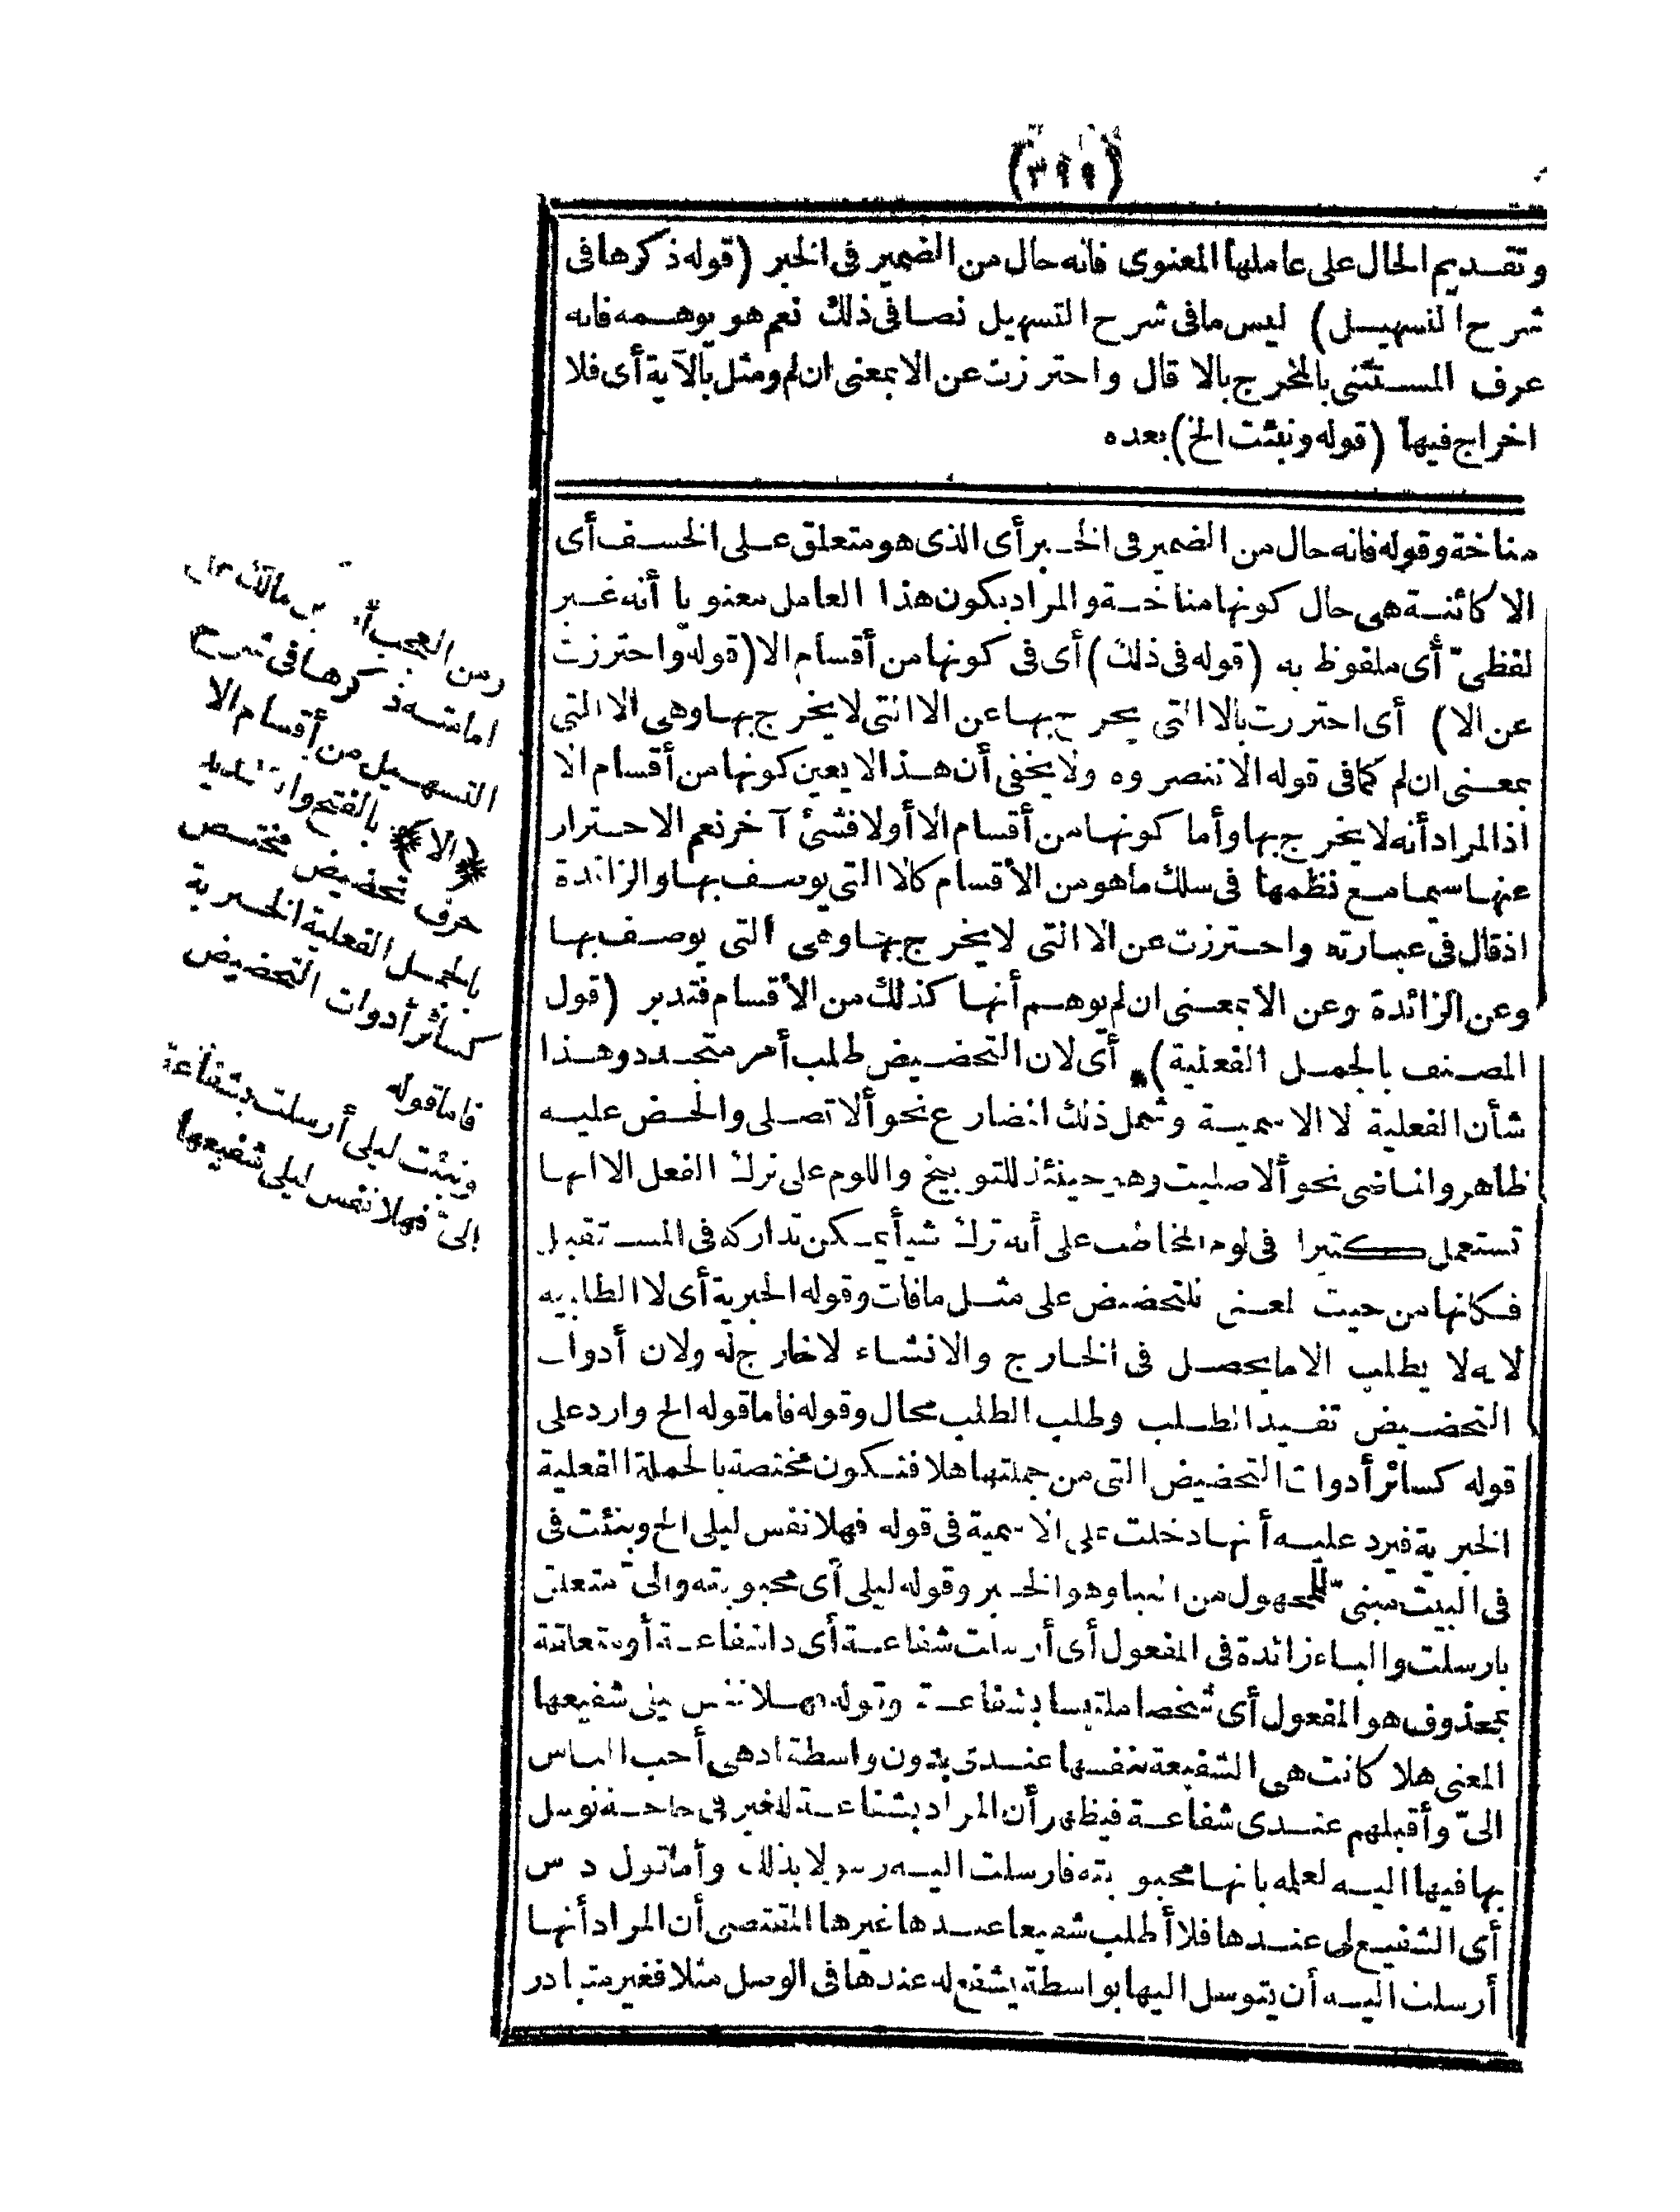 (٣٩٩)
وتقديم الحال على عاملها المعنوى فانه حال من الضمير فى الخبر (قوله ذكرها فى
شرح التسهيل) ليس ما فى شرح التسهيل نصا فى ذلك نعم هو يوهمه فانه
عرف المستثنى بالمخرج بالا قال واحترزت عن الا بمعنى ان لم ومثل بالآية أى فلا
اخراج فيها (قوله ونبئت الخ) بعده
مناخة وقوله فانه حال من الضمير فى الخبر أى الذى هو متعلق على الخسف أى
الا كائنة هى حال كونها مناخة والمراد بكون هذا العامل معنويا أنه غير
لفظىّ أى ملفوظ به (قوله فى ذلك) أى فى كونها من أقسام الا (قوله واحترزت
عن الا) أى احترزت بالا التى يخرج بها عن الا التى لا يخرج بها وهى الا التى
بمعنى ان لم كما فى قوله الا تنصروه ولا يخفى أن هذا لا يعين كونها من أقسام الا
اذ المراد أنه لا يخرج بها وأما كونها من أقسام الا أولا فشئ آخر نعم الاحترار
عنها سيما مع نظمها فى سلك ما هو من الأقسام كالا التى يوصف بها والزائدة
اذ قال فى عبارته واحترزت عن الا التى لا يخرج بها وهى التى يوصف بها
وعن الزائدة وعن الا بمعنى ان لم يوهم أنها كذلك من الأقسام فتدبر (قول
المصنف بالجمل الفعلية) أى لان التحضيض طلب أمر متجدد وهذا
شأن الفعلية لا الاسمية وشمل ذلك المضارع نحو ألا تصلى والحض عليه
ظاهر والماضى نحو ألا صليت وهو حينئذ للتوبيخ واللوم على ترك الفعل الا انها
تستعمل كثيرا فى لوم المخاطب على أنه ترك شيأ يمكن تداركه فى المستقبل
فكانها من حيث المعنى للتحضيض على مثل ما فات وقوله الخبرية أى لا الطلبيه
لانه لا يطلب الا ما يحصل فى الخارج والانشاء لا خارج له ولان أدوات
التحضيض تفيد الطلب وطلب الطلب محال وقوله فاما قوله الخ وارد على
قوله كسائر أدوات التحضيض التى من جملتها هلا فتكون مختصة بالجملة الفعلية
الخبرية فيرد عليه أنها دخلت على الاسمية فى قوله فهلا نفس ليلى الخ ونبئت فى
فى البيت مبنىّ للمجهول من النبا وهو الخبر وقوله ليلى أى محبوبته والىّ متعلق
بارسلت والباء زائدة فى المفعول أى أرسلت شفاعة أى ذا شفاعة أو متعلقة
بمحذوف هو المفعول أى شخصا ملتبسا بشفاعة وقوله فهلا نفس ليلى شفيعها
المعنى هلا كانت هى الشفيعة بنفسها عندى بدون واسطة اذ هى أحب الناس
الىّ وأقبلهم عندى شفاعة فيظهر أن المراد بشفاعة للغير فى حاجة توسل
بها فيها اليه لعلمه بانها محبوبته فارسلت اليه رسولا بذلك وأما قول د س
أى الشفيع لى عندها فلا أطلب شفيعا عندها غيرها المقتضى أن المراد أنها
أرسلت اليه أن يتوسل اليها بواسطة يشفع له عندها فى الوصل مثلا فغير متبادر
ومن العجب أن ابن مالك على
امامته ذكرها فى شرح
التسهيل من أقسام الا
﴿الا﴾ بالفتح والتشديد
حرف تحضيض مختص
بالجمل الفعلية الخبرية
كسائر أدوات التحضيض
فاما قوله
ونبئت ليلى أرسلت بشفاعة
إلىّ فهلا نفس ليلى شفيعها